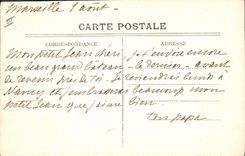 Marseille 1 août
II
CARTE POSTALE
CORRESPONDANCE
ADRESSE
Mon petit Jean chéri, je t'envoie encore
un beau grand bateau — le dernier — avant
de revenir près de toi. Je reviendrai lundi à
Nancy et j'embrasserai beaucoup mon
petit Jean que j'aime bien
ton papa